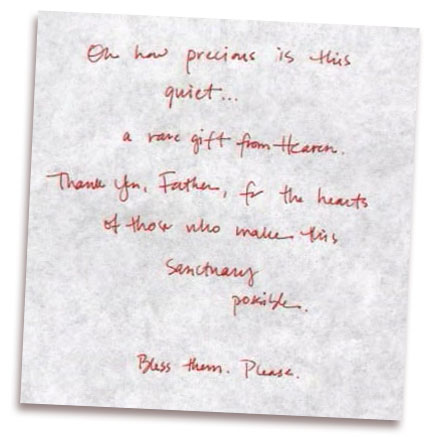 Oh how precious is this
quiet...
a rare gift from Heaven.
Thank You, Father, for the hearts
of those who make this
sanctuary
possible.
Bless them. Please.